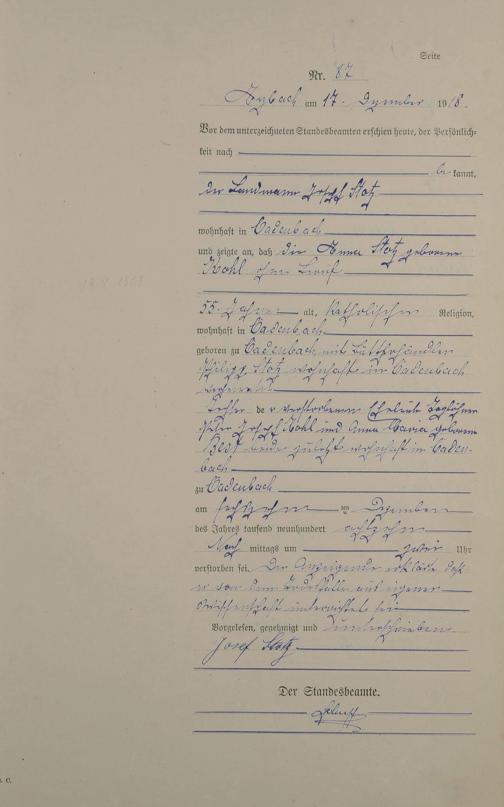 Seite
Nr. 87
Arzbach am 17. Dezember 1918.
Vor dem unterzeichneten Standesbeamten erschien heute, der Persönlich-
keit nach
be kannt,
der Landmann Joseph Stotz
wohnhaft in Cadenbach
und zeigte an, daß die Anna Stotz geborene
Kohl ohne Beruf
55 Jahre alt, katholischer Religion,
wohnhaft in Cadenbach
geboren zu Cadenbach mit
Philipp Stotz wohnhaft in Cadenbach
verheiratet
Tochter der verstorbenen Eheleute Taglöhner
Peter Joseph Kohl und Anna Maria geborene
Best beide zuletzt wohnhaft in Caden-
bach
zu Cadenbach
am sechzehn ten Dezember
des Jahres tausend neunhundert achtzehn
Nach mittags um zwei Uhr
verstorben sei. Der Anzeigende erklärte daß
er von dem Todesfalle aus eigener
Wissenschaft unterrichtet sei
Vorgelesen, genehmigt und unterschrieben
Josef Stotz
Der Standesbeamte.
C.